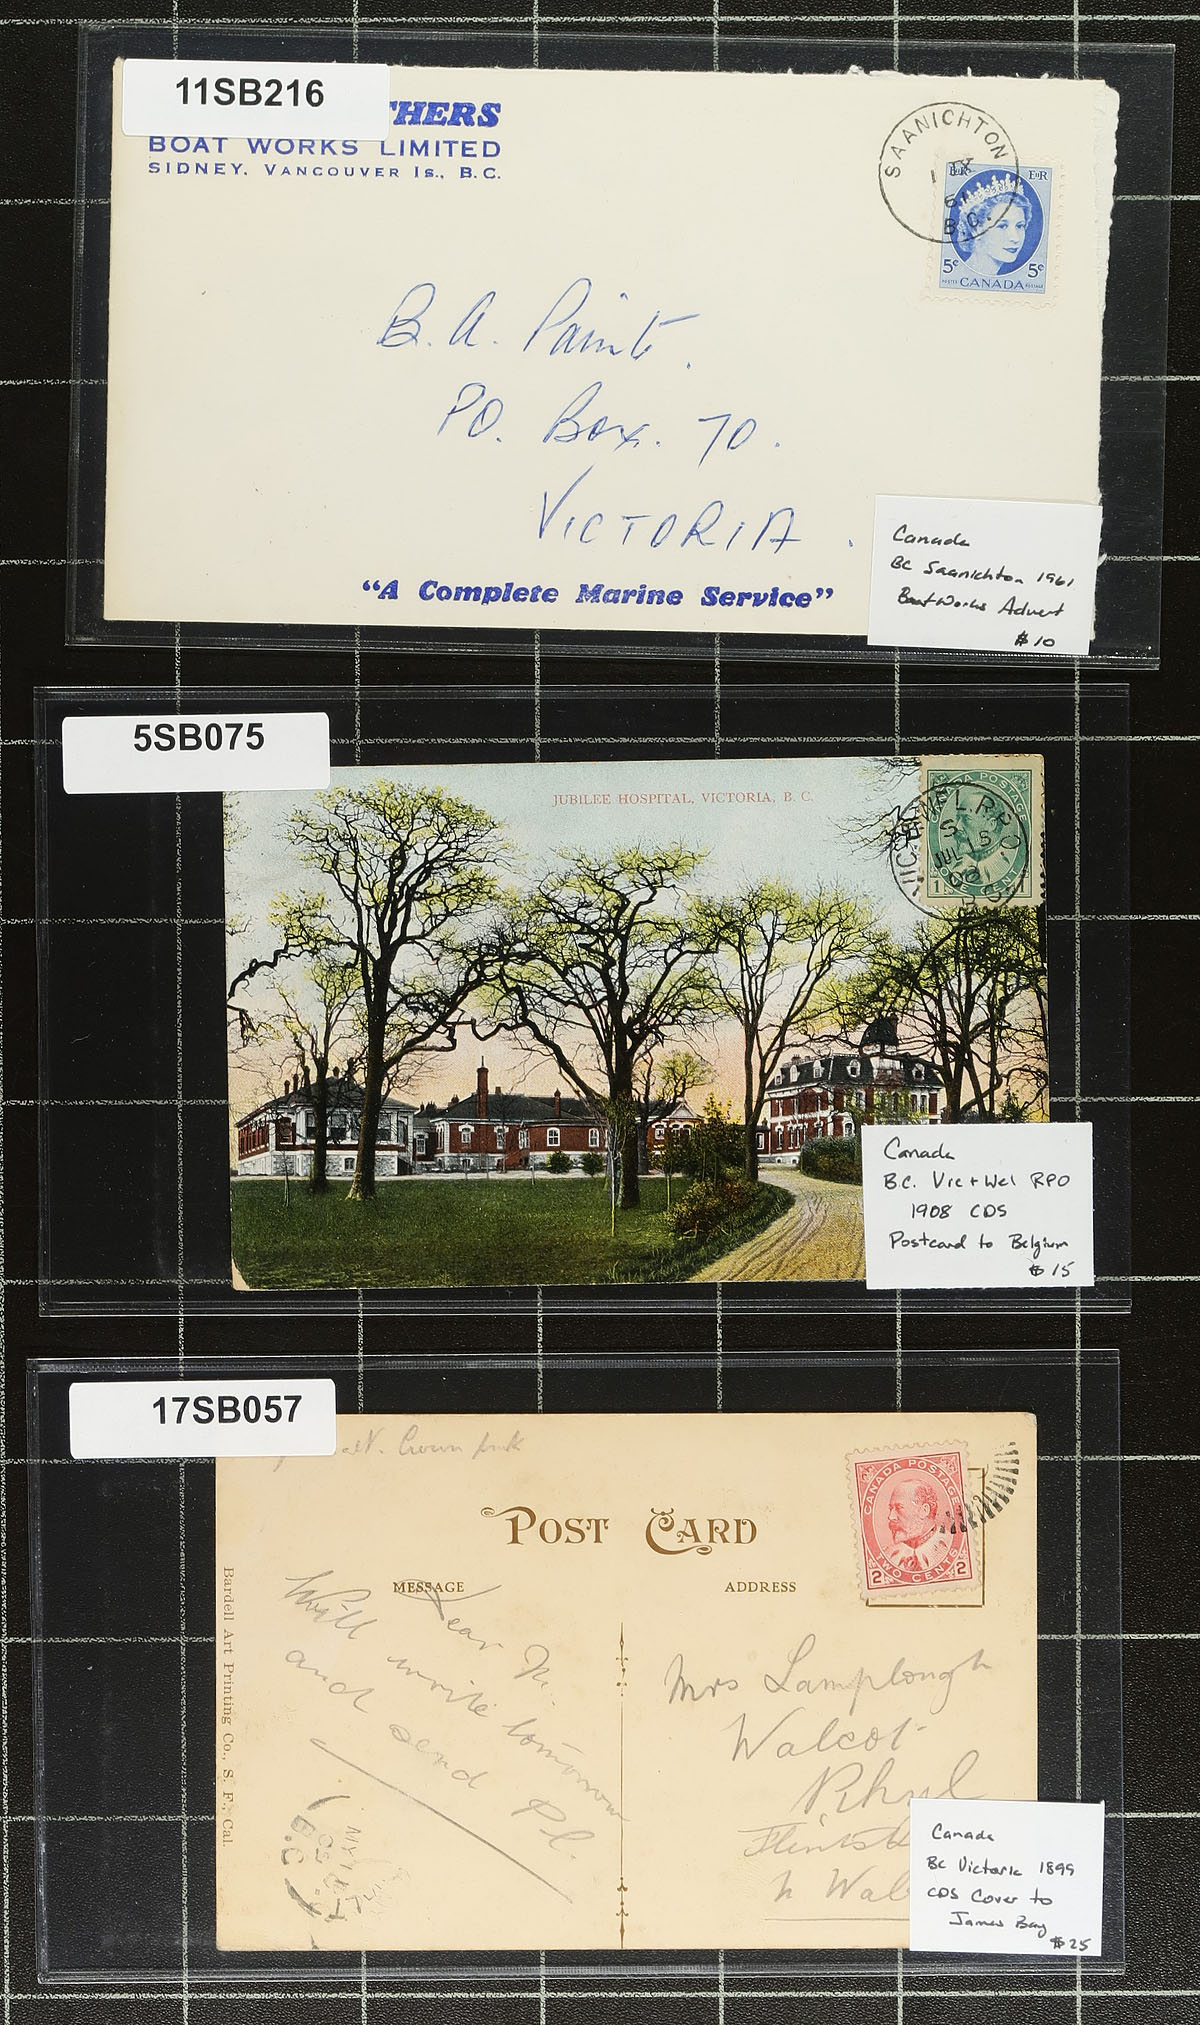 11SB216
THERS
BOAT WORKS LIMITED
SIDNEY, VANCOUVER IS., B.C.
SAANICHTON
IX
61
B.C.
EIIR EIIR
5¢ 5¢
POSTES CANADA POSTAGE
B.A. Paint.
P.O. Box. 70.
VICTORIA.
"A Complete Marine Service"
Canada
BC Saanichton 1961
Boat Works Advert
$10
5SB075
JUBILEE HOSPITAL, VICTORIA, B. C.
CANADA POSTAGE
VIC. & WEL. R.P.O.
S
JUL 15
08
1 ONE CENT
Canada
B.C. Vic + Wel RPO
1908 CDS
Postcard to Belgium
$15
17SB057
Crown
POST CARD
CANADA POSTAGE
2 TWO CENTS 2
MESSAGE
ADDRESS
Dear M.
Will write tomorrow
and send Pl.
Mrs Lamplough
Walcot
Rhyl
Bardell Art Printing Co., S. F., Cal.
B.C
Canada
BC Victoria 1899
CDS Cover to
James Bay
$25